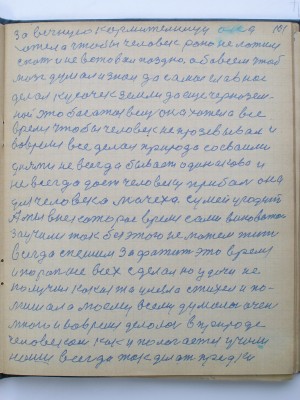 за вечную кормительницу она 101
хотела чтобы человек рано не ложил
спат и не вставал поздно, а обо всем чтоб
мог думал и знал да самое главное
делал кусочек земли да еще чернозем
ной это богатая вещ она хотела все
время чтобы человек не прозевывал и
вовремя все делал природа со своими
детями не всегда бывает одинаково и
не всегда даст человеку прибыл она
для человека мачеха. сумей угодить
А ты в некоторое время сами виноваты
заучили так без этого не можем жить
всегда спешим захватить это время
и пораньше всех сделал но удачи не
получил какая та идея стихия и по-
мишала моему всему думают очен
много и вовремя делалос в природе
человеком как и пологается учили
наши всегда так делат предки